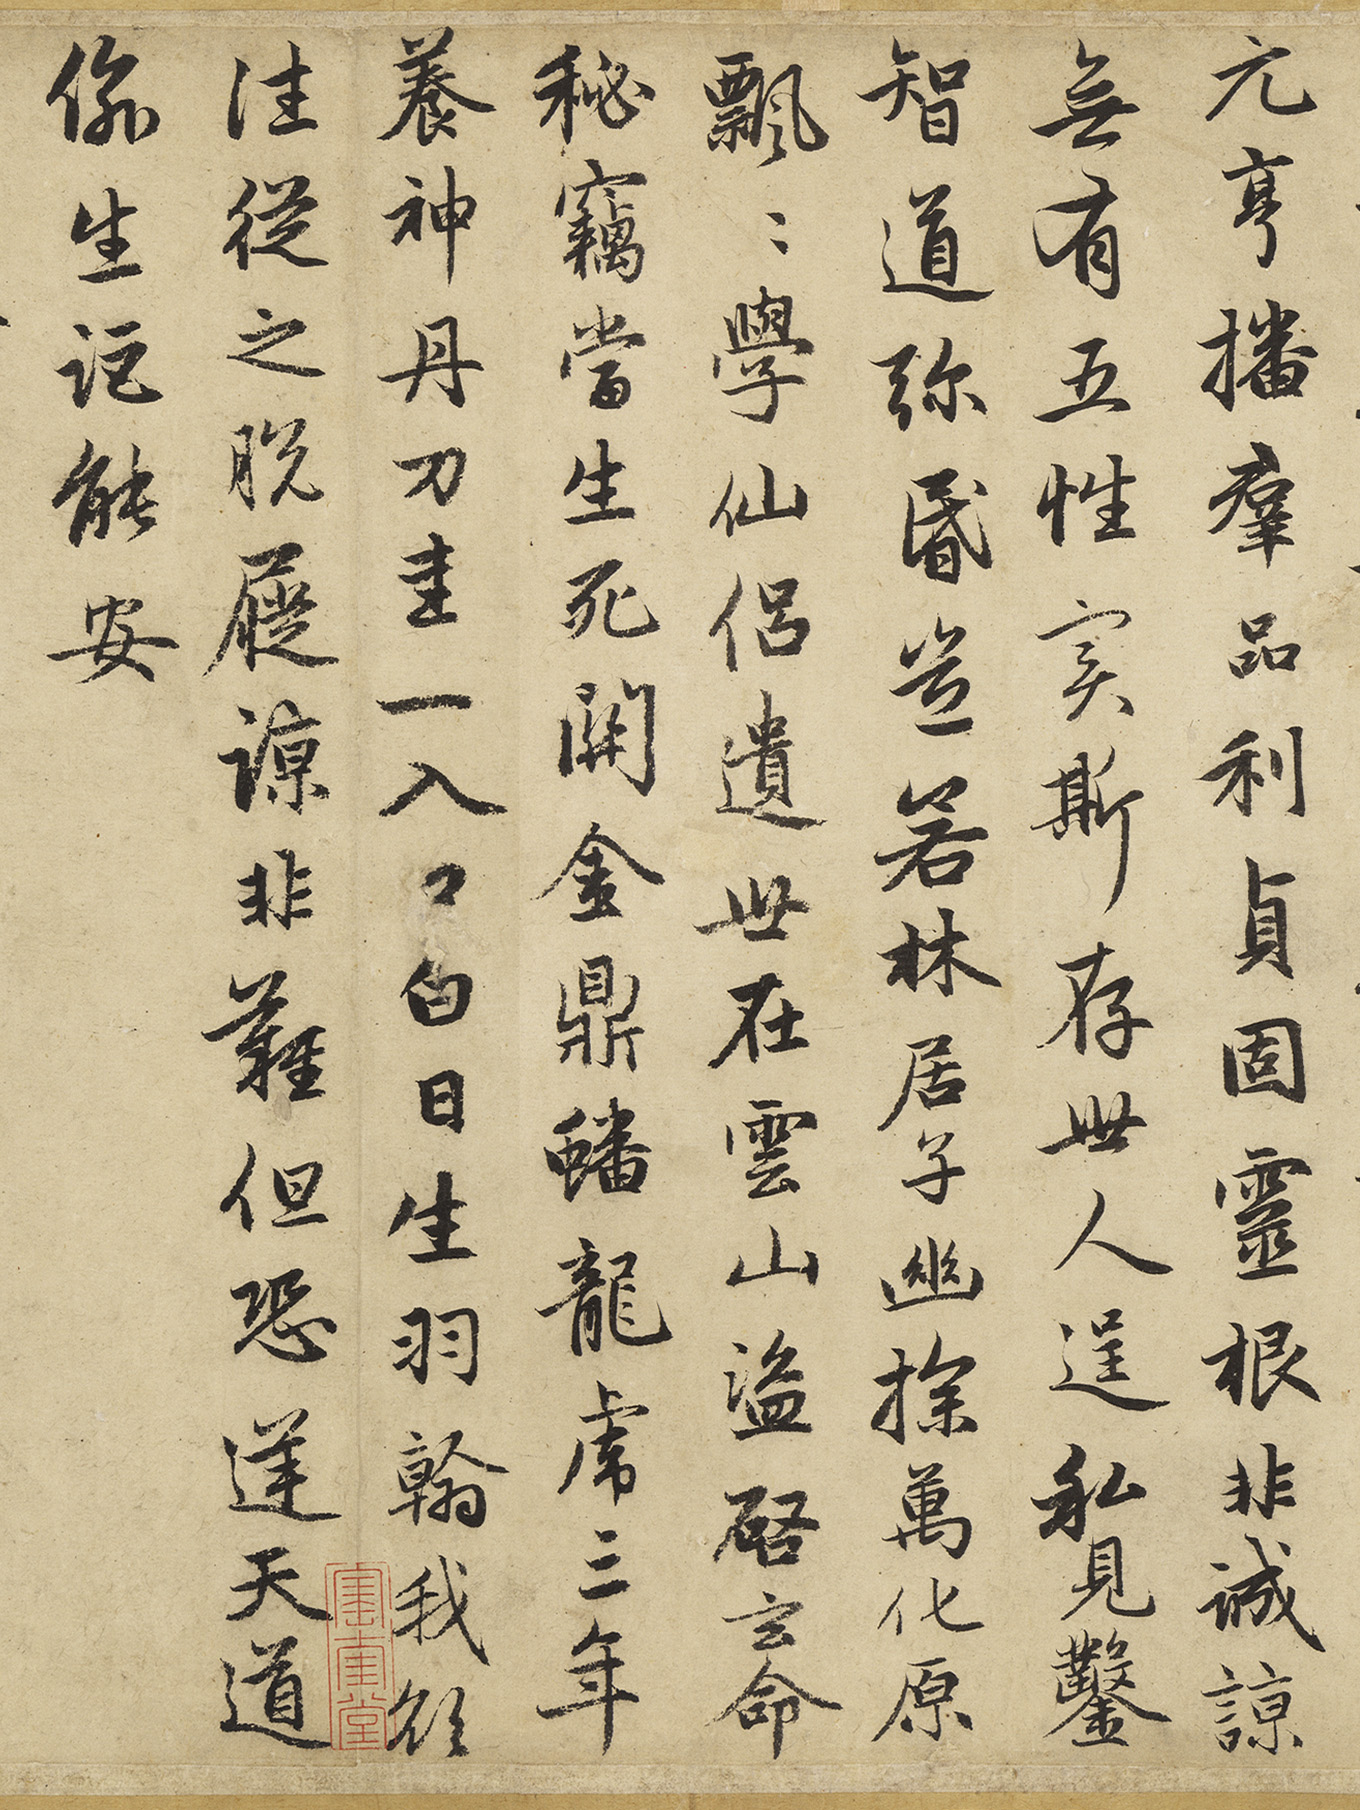 元亨播羣品利貞固靈根非誠諒
無有五性實斯存世人逞私見鑿
智道弥昬豈若林居子幽探萬化原
飄〻學仙侶遺世在雲山盜啓玄命
秘竊當生死關金鼎蟠龍虎三年
養神丹刀圭一入口白日生羽翰我欲
往從之脫屣諒非難但恐逆天道
偷生詎能安